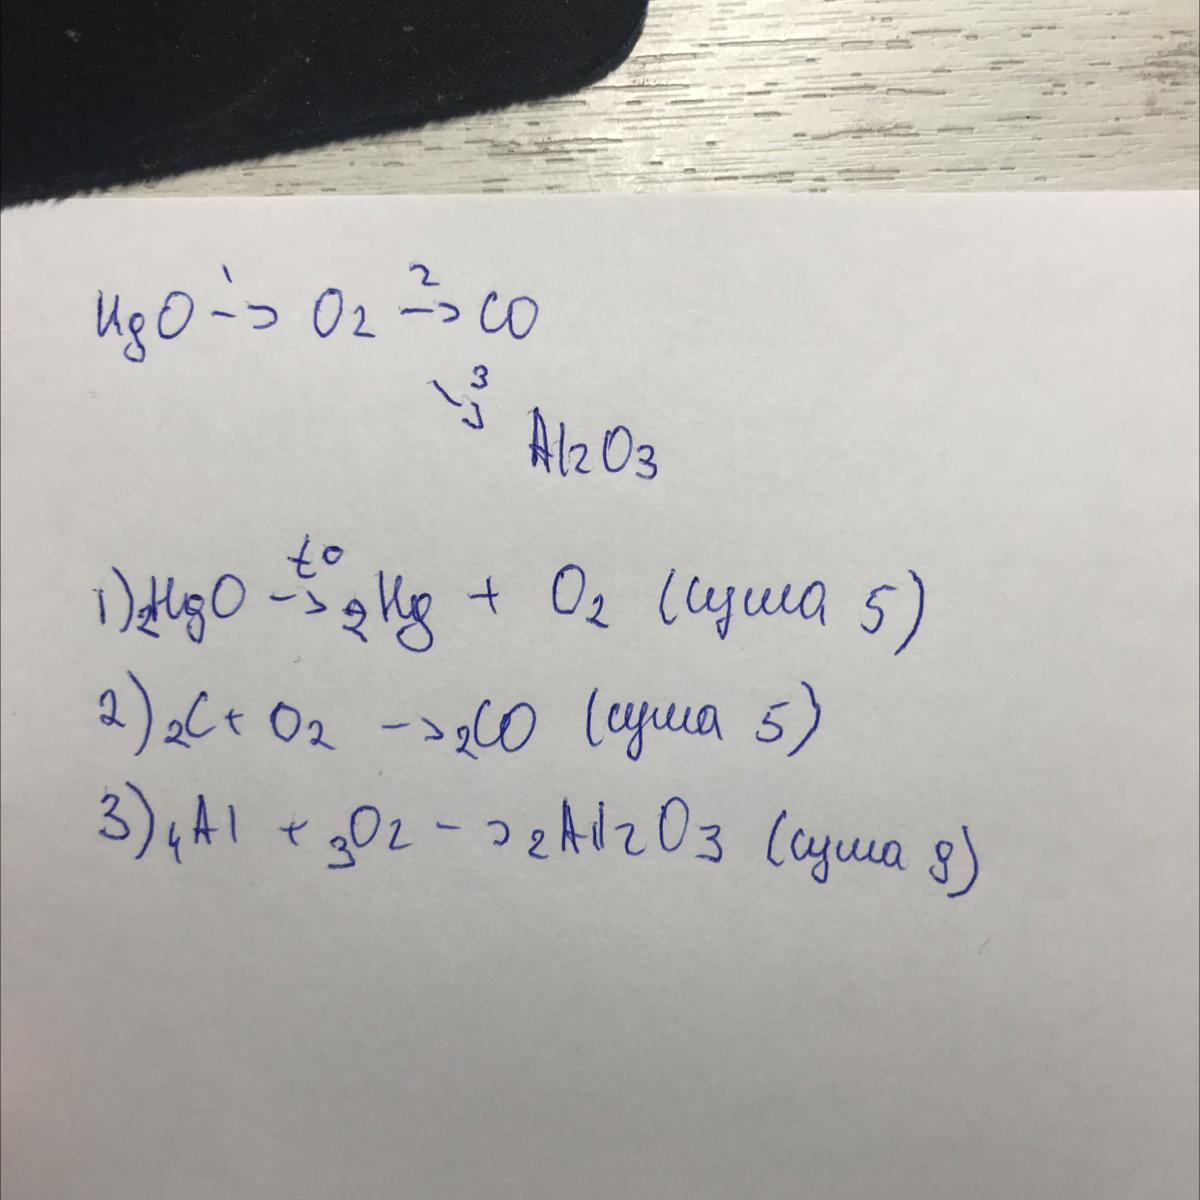 HgO -> O2 -> CO
1 2
3
Al2O3
t°
1) 2HgO -> 2Hg + O2 (сума 5)
2) 2C + O2 -> 2CO (сума 5)
3) 4Al + 3O2 -> 2Al2O3 (сума 9)